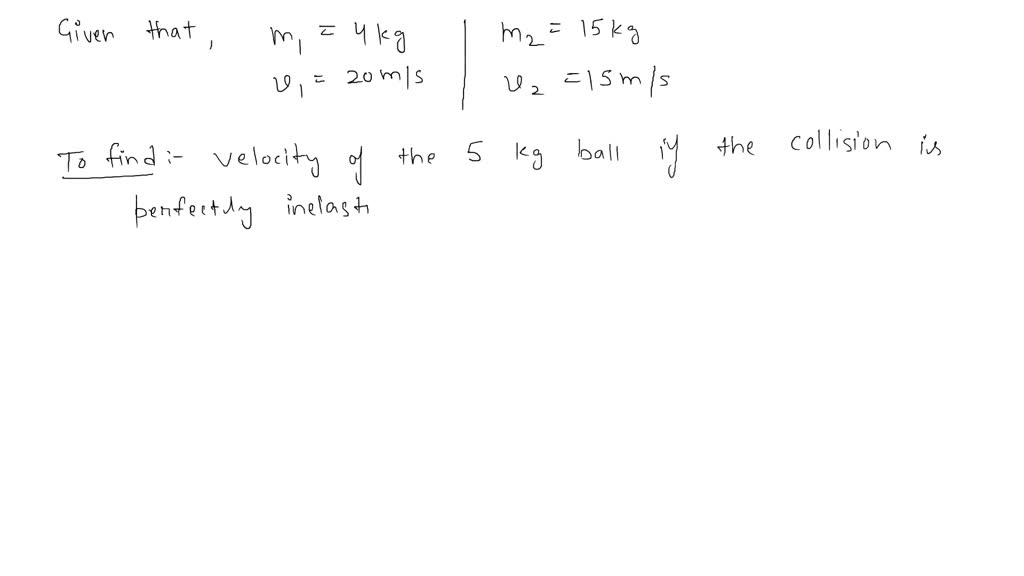 Given that, m₁ = 4 kg | m₂ = 15 kg
v₁ = 20 m/s | v₂ = 15 m/s
To find :- velocity of the 5 kg ball if the collision is
perfectly inelasti